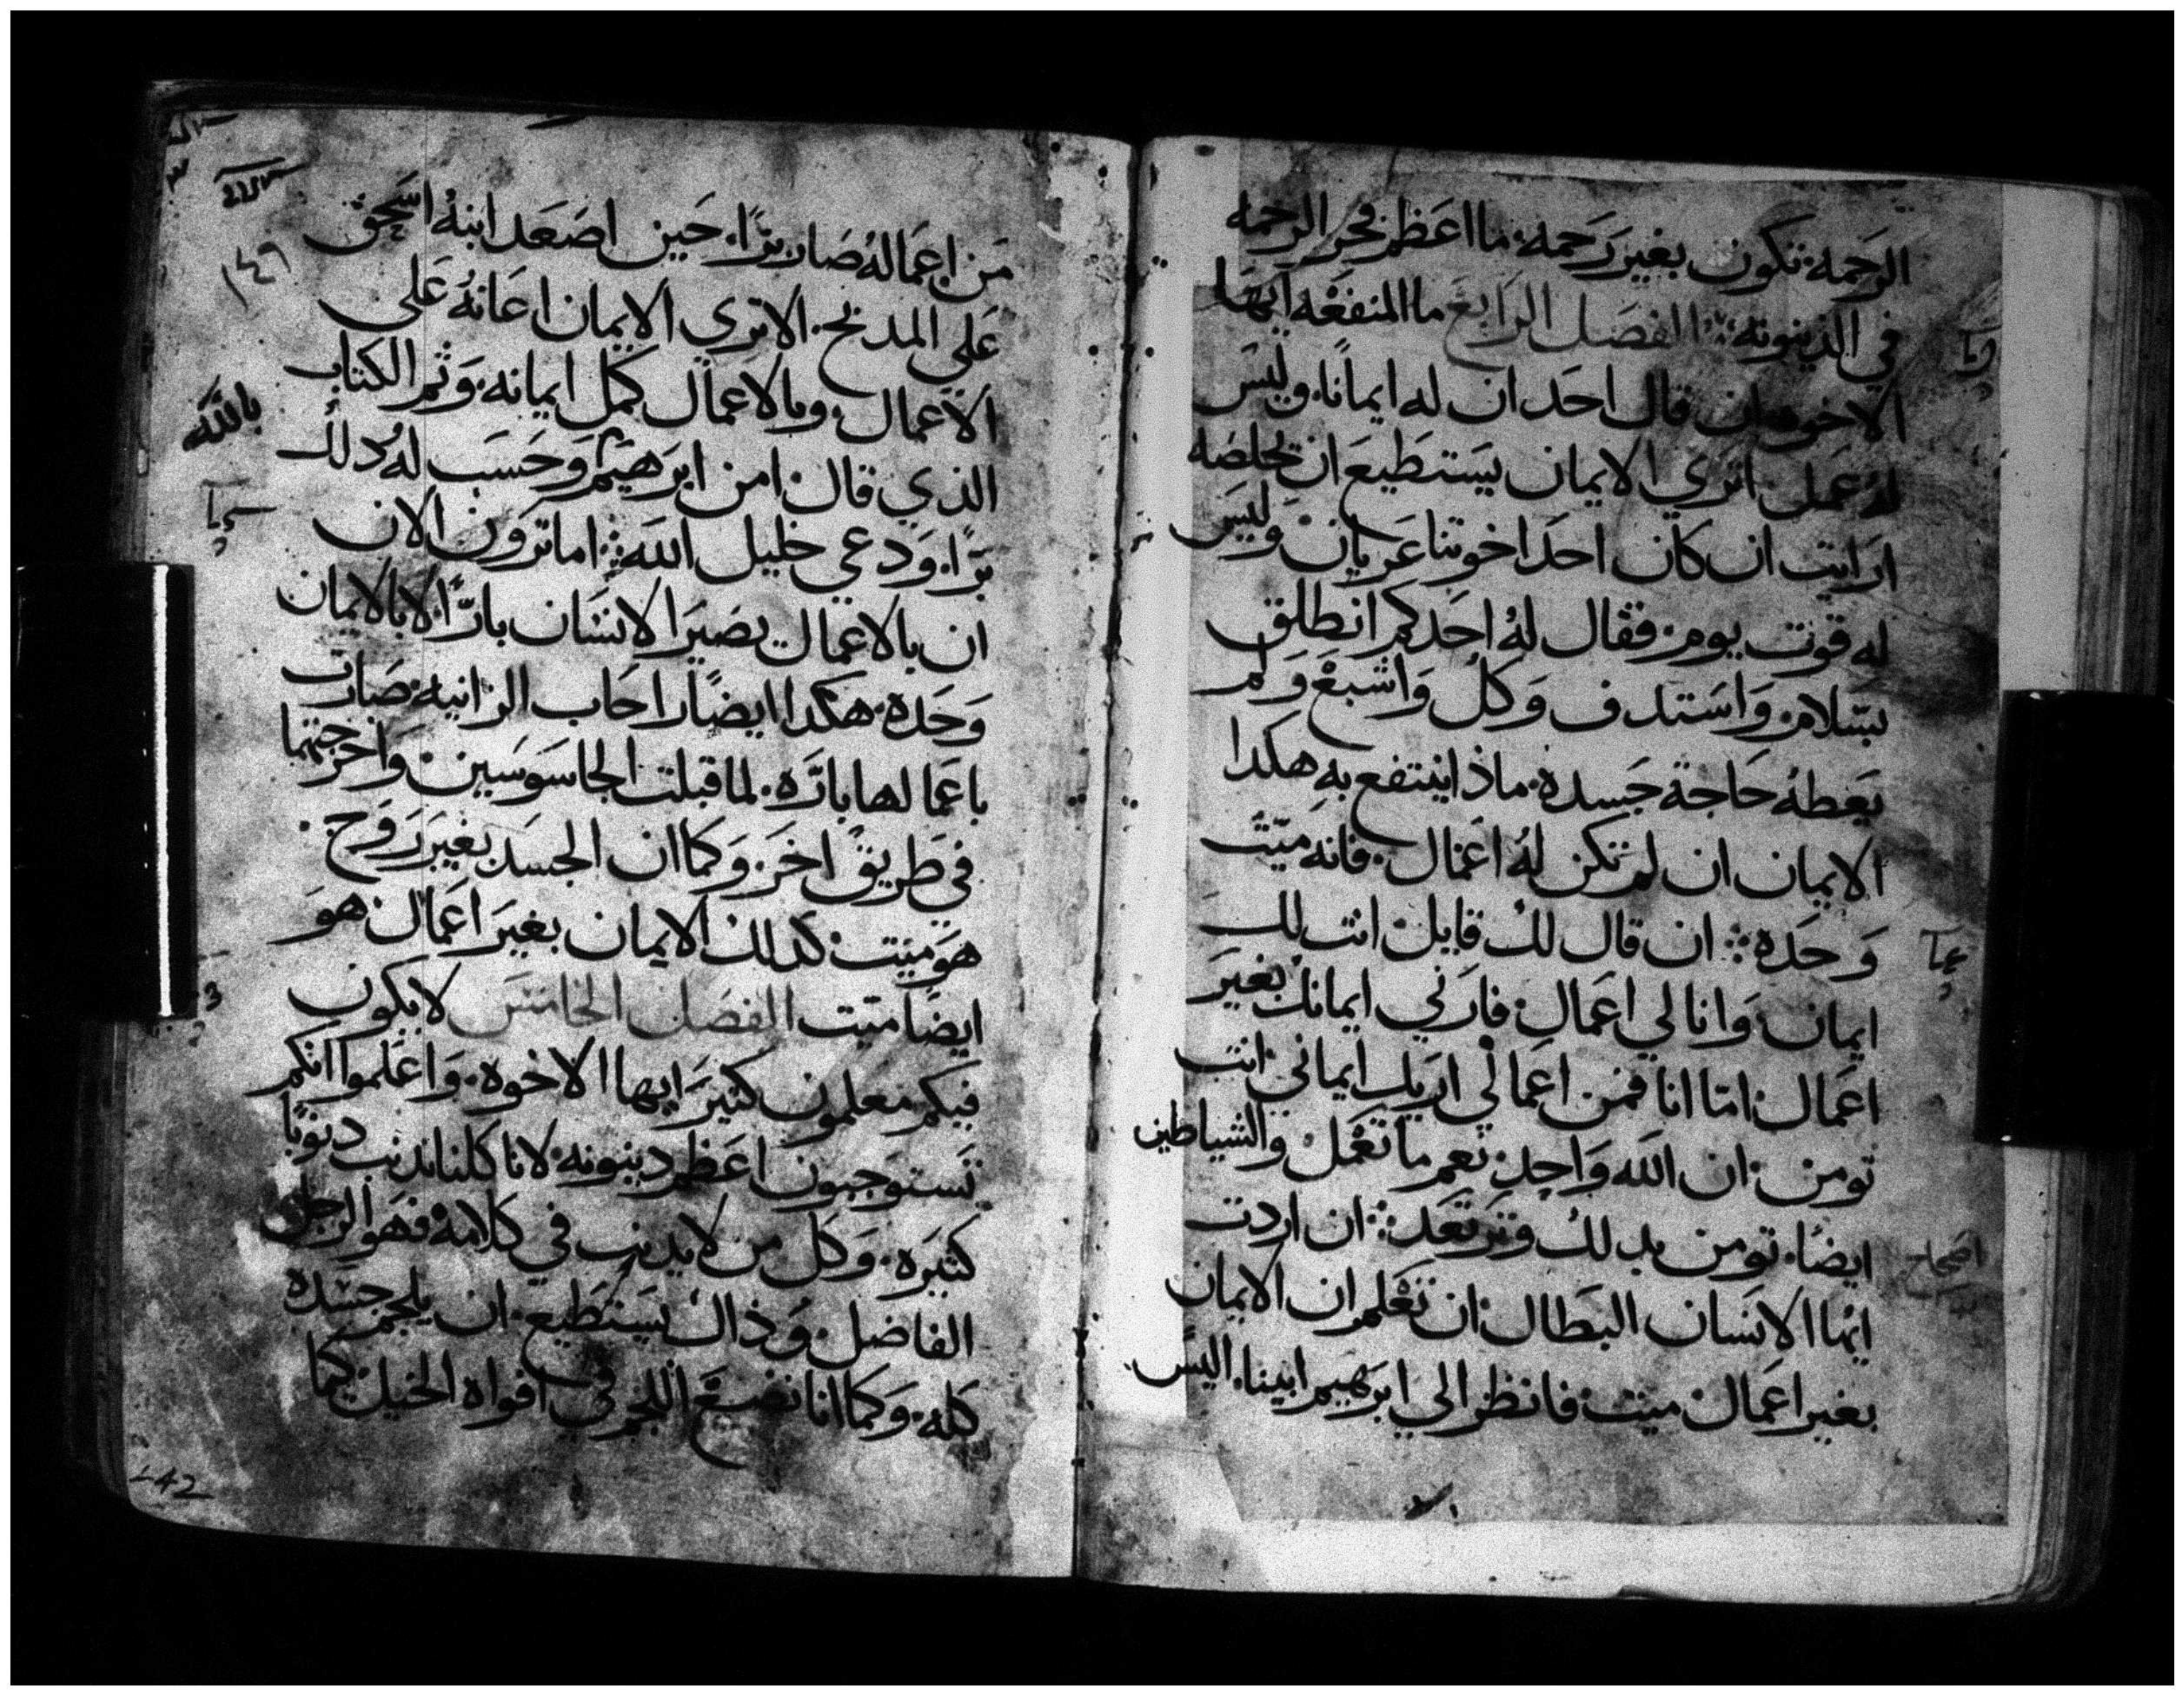 الرحمه تكون بغير رحمه. ما اعظم فخر الرحمه
في الدينونه. الفصل الرابع ما المنفعه ايها
الاخوه ان قال احد ان له ايمانا. وليس
له عمل اتري الايمان يستطيع ان يخلصه
ارايت ان كان احد اخوتنا عريان وليس
له قوت يوم. فقال له احدكم انطلق
بسلام. واستدف وكل واشبع ولم
يعطه حاجة جسده. ماذا ينتفع به هكدا
الايمان ان لم تكن له اعمال. فانه ميت
وحده. ان قال لك قايل انت لك
ايمان وانا لي اعمال فارني ايمانك بغير
اعمال. امّا انا فمن اعمالي اريك ايماني. انت
تومن. ان الله واحد نعم ما تعمل والشياطين
ايضا. تومن بدلك وترتعد. ان اردت
ايها الانسان البطال ان تعلم ان الايمان
بغير اعمال ميت فانظر الي ابرهيم ابينا. اليس
اصحاح
من اعماله صار برّا. حين اصعد ابنه اسحق
علي المدبح. الا تري الايمان اعانه علي
الاعمال. وبالاعمال كمل ايمانه. وتم الكتاب
الذي قال امن ابرهيم وحسب له دلك
برّا. ودعي خليل الله. اما ترون الان
ان بالاعمال يصير الانسان بارّا لا بالايمان
وحده. هكدا ايضا راحاب الزانيه. صارت
باعمالها بارّه. لما قبلت الجاسوسين. واخرجتهما
في طريق اخر. وكما ان الجسد بغير روح.
هو ميت. كدلك الايمان بغير اعمال هو
ايضا ميت الفصل الخامس لا يكون
فيكم معلمون كثير ايها الاخوه. واعلموا انكم
تستوجبون اعظم دينونه. لانا كلنا ندنب دنوبا
كثيره. وكل من لا يدنب في كلامه فهو الرجل
الفاضل. وذاك يستطيع. ان يلجم جسده
كله. وكما انا نضع اللجم في افواه الخيل. كيما
١٤٩
بالله
142